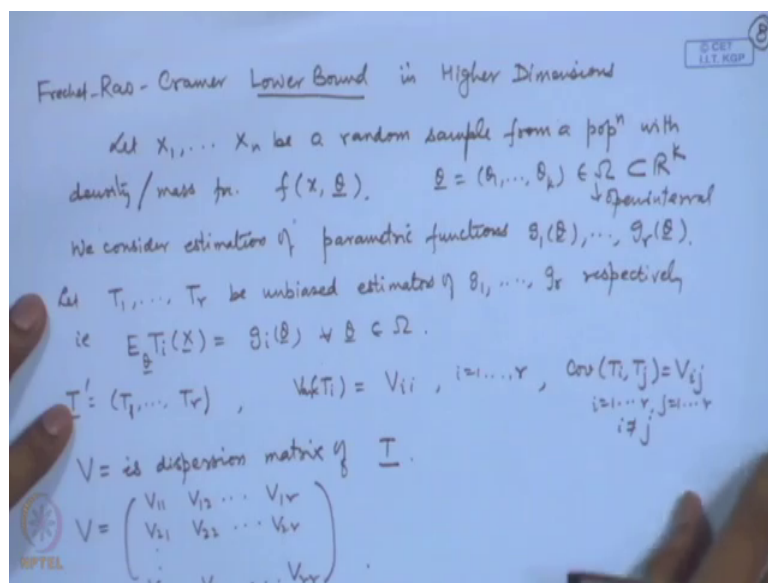 8
© CET
I.I.T. KGP
Frechet-Rao-Cramer Lower Bound in Higher Dimensions
Let X₁, ... Xₙ be a random sample from a popⁿ with
density/mass fn. f(x, θ). θ = (θ₁, ..., θₖ) ∈ Ω ⊂ Rᵏ
↓ open interval
We consider estimation of parametric functions g₁(θ), ..., gᵣ(θ).
Let T₁, ... Tᵣ be unbiased estimators of g₁, ..., gᵣ respectively
ie E_θ Tᵢ(X) = gᵢ(θ) ∀ θ ∈ Ω.
T' = (T₁, ... Tᵣ), Var(Tᵢ) = Vᵢᵢ, i=1...,r, Cov(Tᵢ, Tⱼ) = Vᵢⱼ
i=1...r, j=1...r
i≠j
V = is dispersion matrix of T
V = ( V₁₁ V₁₂ ... V₁ᵣ
V₂₁ V₂₂ ... V₂ᵣ
⋮
Vᵣᵣ ) .
NPTEL